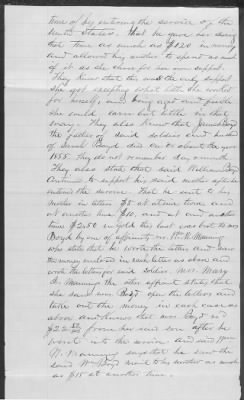 time of his entering the service of the
United States. that he gave her during
that time as much as $120 in money
and allowed his mother to spend as much
of it as she chose for her own support.
They know that this was the only support
she got excepting what little she worked
for herself, and being aged and feeble
she could earn but little in that
way. They also know that James Boyd
the father of said soldier and husband
of Sarah Boyd died on or about the year
1855. They do not remember day or month
They also state that said William Boyd
continued to support his said mother after he
entered the service. That he sent to his
mother in letters $5 at one time and
at another time $10, and at another
time $2.50 in gold this last was sent to Mrs
Boyd by one of affiants Wm N. Manning
who state that he wrote the letters and saw
the money enclosed in each letter as above and
wrote the letters for said soldier. Mrs. Mary
A. Manning the other affiant states that
she saw Mrs Boyd open the letters and
take out the money in each case as
above and knows that Mrs Boyd rec'd
$22 50/100 from her said son after he
went into the service and said Wm
N. Manning says that he saw the
said Wm Boyd send to his mother as much
as $15 at another time.